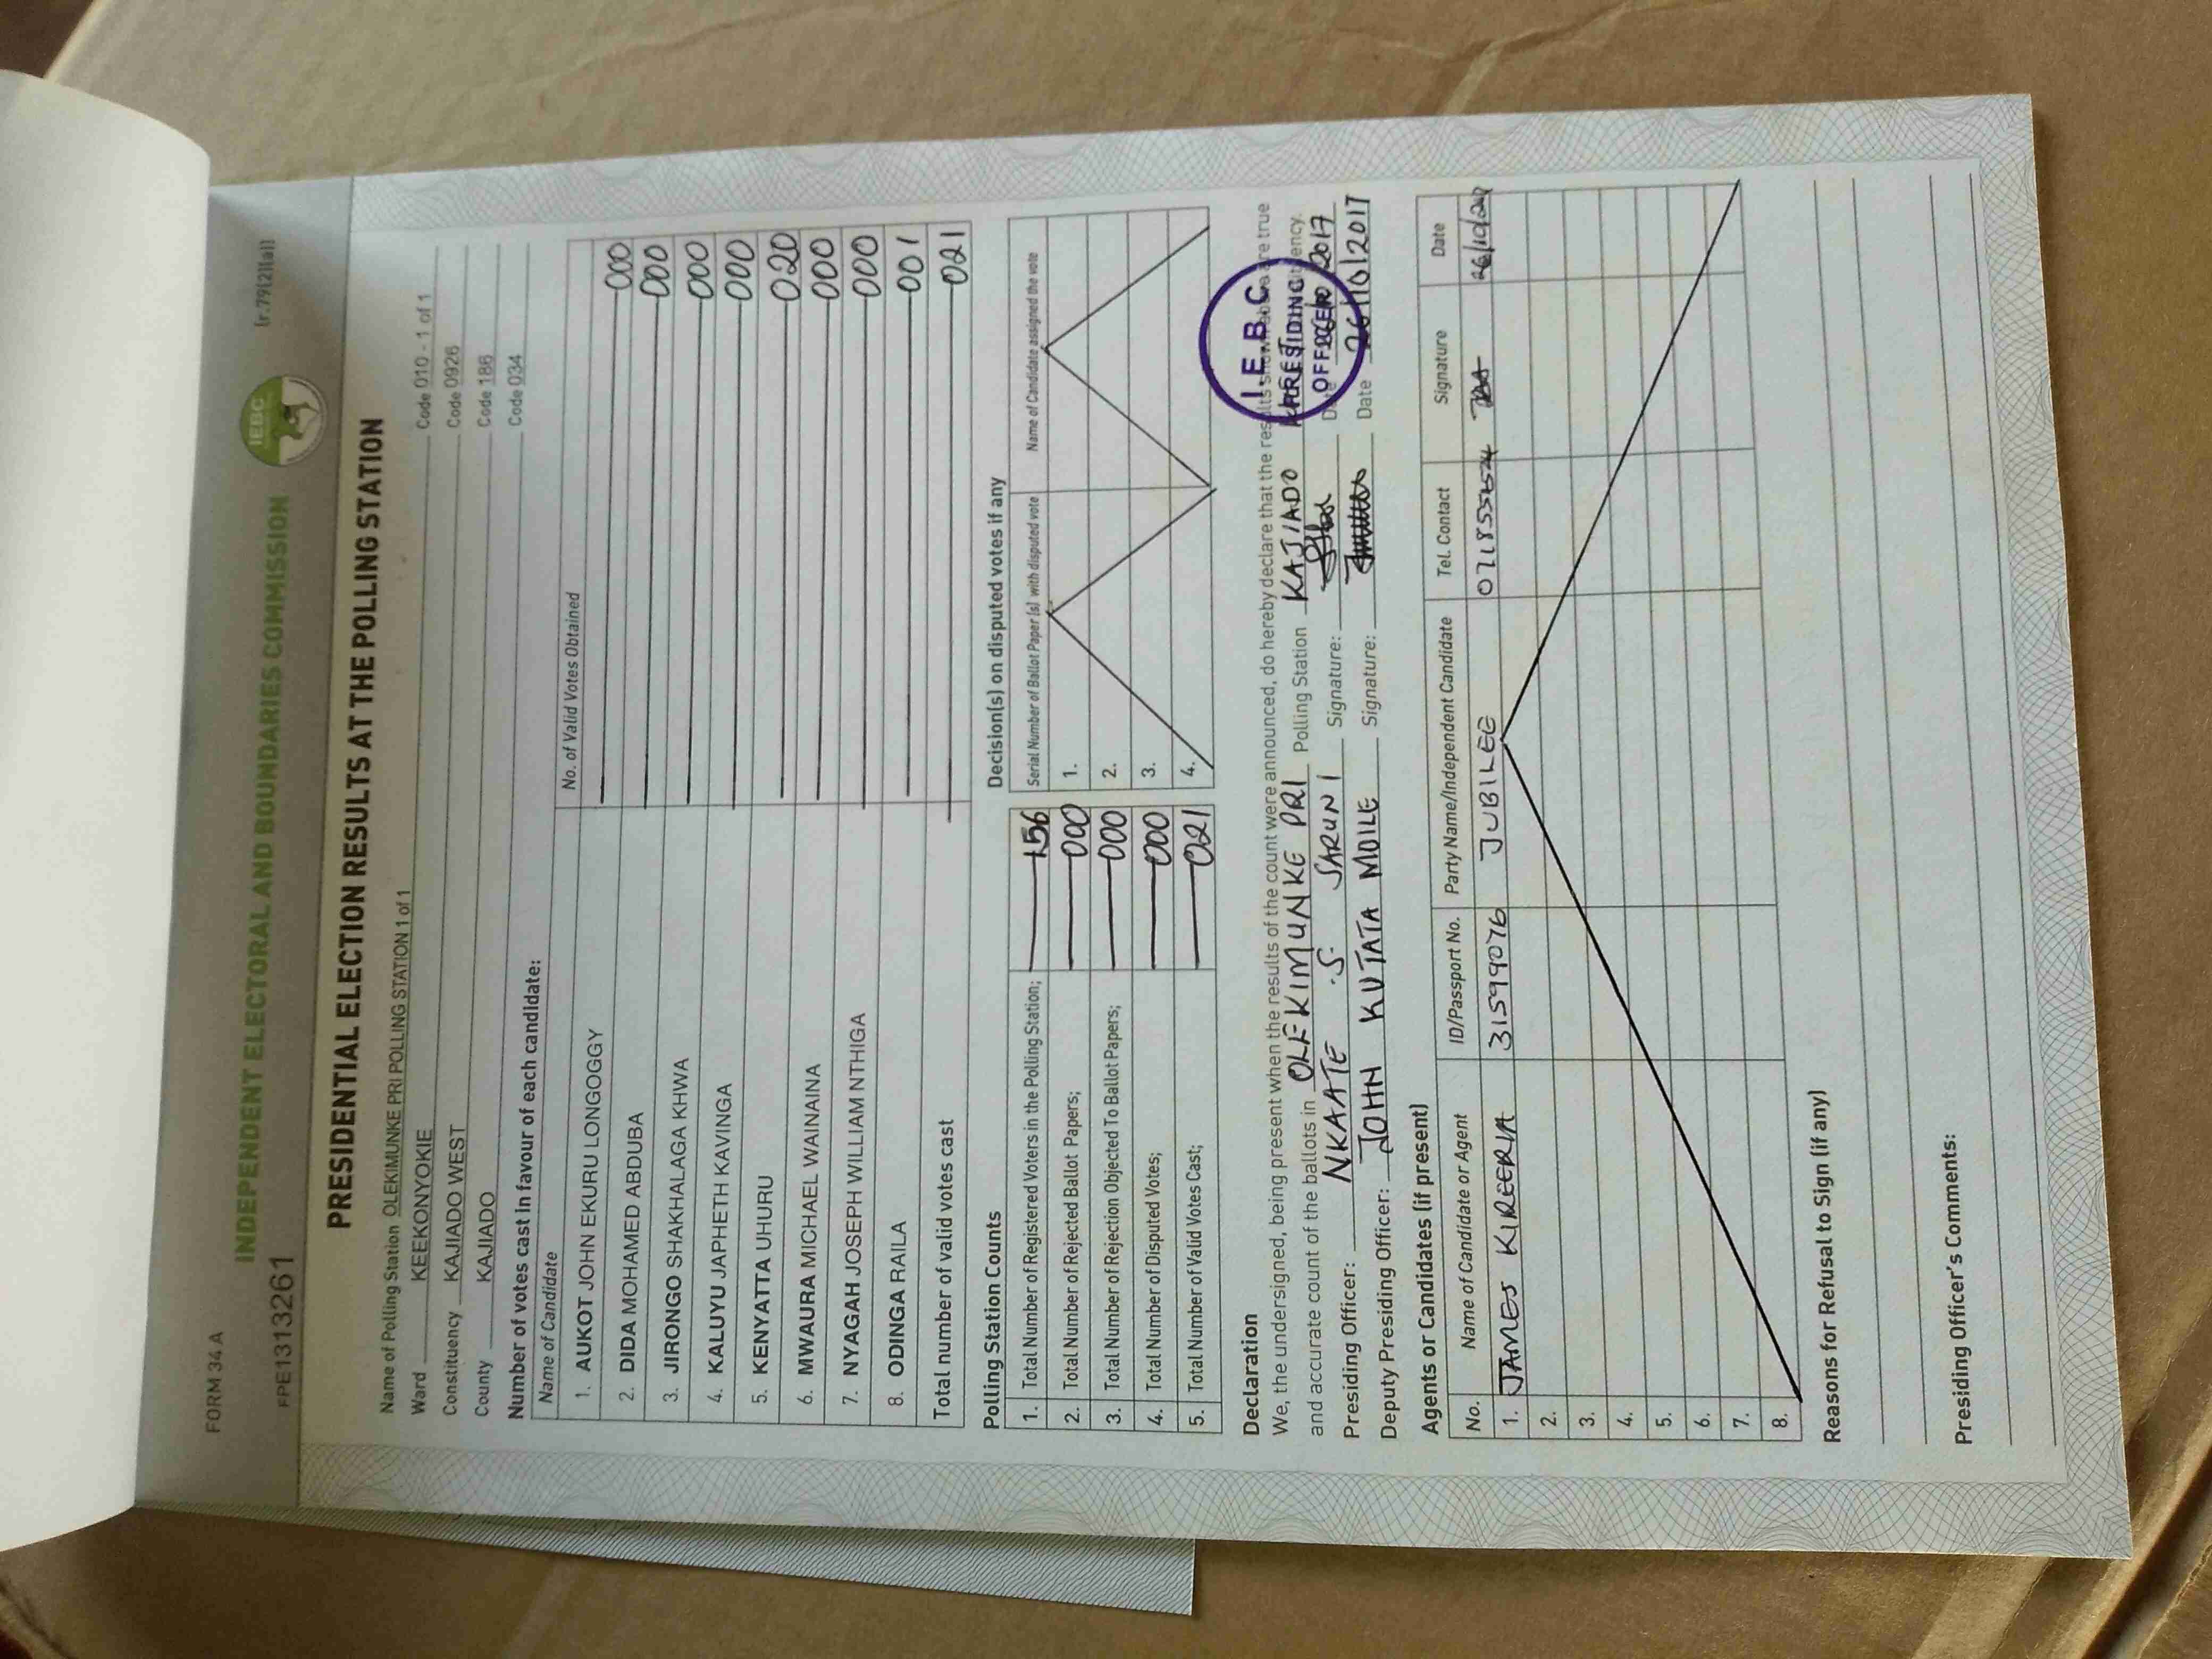 FORM 34 A
INDEPENDENT ELECTORAL AND BOUNDARIES COMMISSION
IEBC
(r.79(2)(a))
FPE1313261
PRESIDENTIAL ELECTION RESULTS AT THE POLLING STATION
Name of Polling Station OLEKIMUNKE PRI POLLING STATION 1 of 1 Code 010 - 1 of 1
Ward KEEKONYOKIE Code 0926
Constituency KAJIADO WEST Code 186
County KAJIADO Code 034
Number of votes cast in favour of each candidate:
Name of Candidate No. of Valid Votes Obtained
1. AUKOT JOHN EKURU LONGOGGY 000
2. DIDA MOHAMED ABDUBA 000
3. JIRONGO SHAKHALAGA KHWA 000
4. KALUYU JAPHETH KAVINGA 000
5. KENYATTA UHURU 020
6. MWAURA MICHAEL WAINAINA 000
7. NYAGAH JOSEPH WILLIAM NTHIGA 000
8. ODINGA RAILA 001
Total number of valid votes cast 021
Polling Station Counts Decision(s) on disputed votes if any
1. Total Number of Registered Voters in the Polling Station; 156
2. Total Number of Rejected Ballot Papers; 000
3. Total Number of Rejection Objected To Ballot Papers; 000
4. Total Number of Disputed Votes; 000
5. Total Number of Valid Votes Cast; 021
Serial Number of Ballot Paper (s) with disputed vote Name of Candidate assigned the vote
1.
2.
3.
4.
Declaration
We, the undersigned, being present when the results of the count were announced, do hereby declare that the results shown above are true
and accurate count of the ballots in OLEKIMUNKE PRI Polling Station KAJIADO Constituency.
Presiding Officer: NKAATE .S. SARUNI Signature: Date 26/10/2017
Deputy Presiding Officer: JOHN KUTATA MOILE Signature: Date 26/10/2017
I.E.B.C
PRESIDING
OFFICER
Agents or Candidates (if present)
No. Name of Candidate or Agent ID/Passport No. Party Name/Independent Candidate Tel. Contact Signature Date
1. JAMES KIREERIA 31599076 JUBILEE
2.
3.
4.
5.
6.
7.
8.
Reasons for Refusal to Sign (if any)
Presiding Officer's Comments: